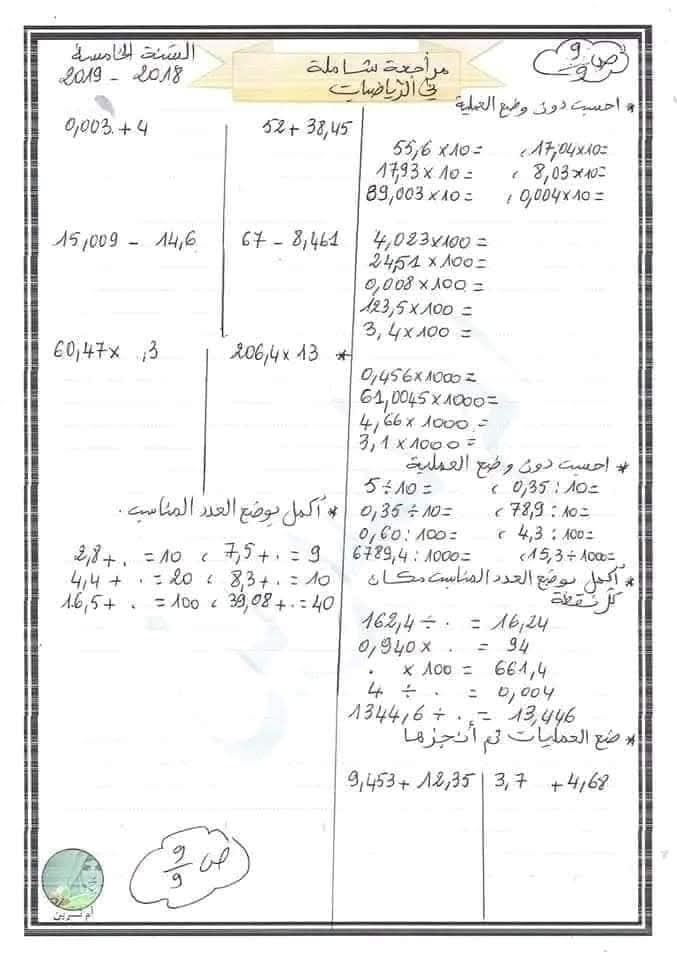 ص 9/9
مراجعة شاملة
في الرياضيات
السنة الخامسة
2019 - 2018
* احسب دون وضع العملية
55,6 × 10 = ، 17,04 × 10 =
17,93 × 10 = ، 8,03 × 10 =
89,003 × 10 = ، 0,004 × 10 =
4,023 × 100 =
24,51 × 100 =
0,008 × 100 =
123,5 × 100 =
3,4 × 100 =
0,456 × 1000 =
61,0045 × 1000 =
4,66 × 1000 =
3,1 × 1000 =
* احسب دون وضع العملية
5 ÷ 10 = ، 0,35 : 10 =
0,35 ÷ 10 = ، 78,9 : 10 =
0,60 : 100 = ، 4,3 : 100 =
6789,4 : 1000 = ، 15,3 ÷ 1000 =
* أكمل بوضع العدد المناسب مكان
كل نقطة
162,4 ÷ . = 16,24
0,940 × . = 94
. × 100 = 661,4
4 ÷ . = 0,004
1344,6 ÷ . = 13,446
* ضع العمليات ثم أنجزها
9,453 + 12,35 | 3,7 + 4,68
0,003 + 4 | 52 + 38,45
15,009 - 14,6 | 67 - 8,461
60,47 × ,3 | 206,4 × 13 *
* أكمل بوضع العدد المناسب.
2,8 + . = 10 ، 7,5 + . = 9
4,4 + . = 20 ، 8,3 + . = 10
16,5 + . = 100 ، 39,08 + . = 40
ص 9/9
أم نسرين